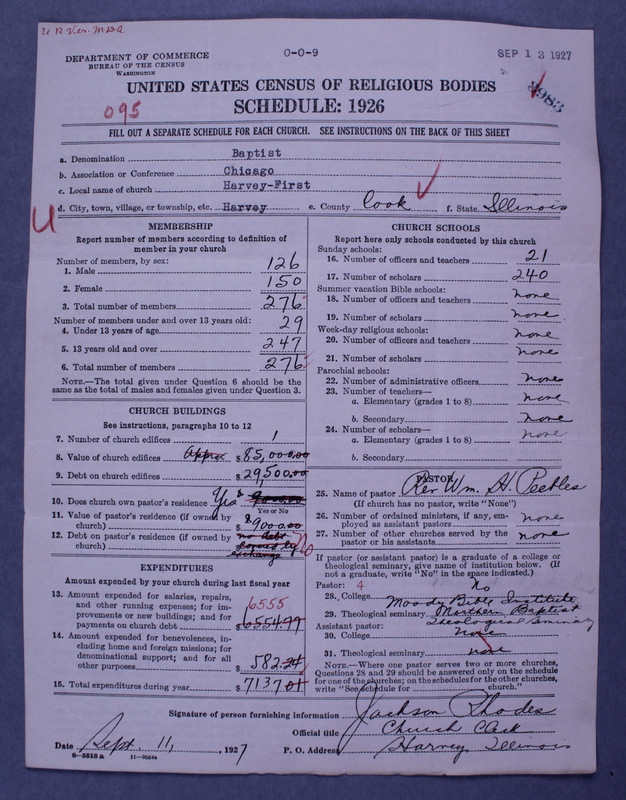 U R Ver. MDR
DEPARTMENT OF COMMERCE
BUREAU OF THE CENSUS
WASHINGTON
0-0-9
SEP 13 1927
UNITED STATES CENSUS OF RELIGIOUS BODIES
SCHEDULE: 1926
095
FILL OUT A SEPARATE SCHEDULE FOR EACH CHURCH. SEE INSTRUCTIONS ON THE BACK OF THIS SHEET
a. Denomination Baptist
b. Association or Conference Chicago
c. Local name of church Harvey-First
d. City, town, village, or township, etc. Harvey e. County Cook f. State Illinois
U
MEMBERSHIP
Report number of members according to definition of
member in your church
Number of members, by sex:
1. Male 126
2. Female 150
3. Total number of members 276
Number of members under and over 13 years old:
4. Under 13 years of age 29
5. 13 years old and over 247
6. Total number of members 276
NOTE.—The total given under Question 6 should be the
same as the total of males and females given under Question 3.
CHURCH BUILDINGS
See instructions, paragraphs 10 to 12
7. Number of church edifices 1
8. Value of church edifices Approx $ 85,000.00
9. Debt on church edifices $ 29,500.00
10. Does church own pastor's residence Yes
Yes or No
11. Value of pastor's residence (if owned by
church) $ 9000.00
12. Debt on pastor's residence (if owned by
church) no debt
EXPENDITURES
Amount expended by your church during last fiscal year
13. Amount expended for salaries, repairs,
and other running expenses; for im-
provements or new buildings; and for
payments on church debt 6555
$ 6554.77
14. Amount expended for benevolences, in-
cluding home and foreign missions; for
denominational support; and for all
other purposes $ 582.24
15. Total expenditures during year $ 7137.01
CHURCH SCHOOLS
Report here only schools conducted by this church
Sunday schools:
16. Number of officers and teachers 21
17. Number of scholars 240
Summer vacation Bible schools:
18. Number of officers and teachers none
19. Number of scholars none
Week-day religious schools:
20. Number of officers and teachers none
21. Number of scholars none
Parochial schools:
22. Number of administrative officers none
23. Number of teachers—
a. Elementary (grades 1 to 8) none
b. Secondary none
24. Number of scholars—
a. Elementary (grades 1 to 8) none
b. Secondary
PASTOR
25. Name of pastor Rev Wm. H. Peebles
(If church has no pastor, write "None")
26. Number of ordained ministers, if any, em-
ployed as assistant pastors none
27. Number of other churches served by the
pastor or his assistants none
If pastor (or assistant pastor) is a graduate of a college or
theological seminary, give name of institution below. (If
not a graduate, write "No" in the space indicated.)
Pastor: 4 No
28. College Moody Bible Institute
29. Theological seminary Northern Baptist
Assistant pastor: Theological Seminary
30. College none
31. Theological seminary none
NOTE.—Where one pastor serves two or more churches,
Questions 28 and 29 should be answered only on the schedule
for one of the churches; on the schedules for the other churches,
write "See schedule for church."
Signature of person furnishing information Jackson Rhodes
Official title Church Clerk
Date Sept. 11, 1927 P. O. Address Harvey Illinois
8-5518 a 11-9054a